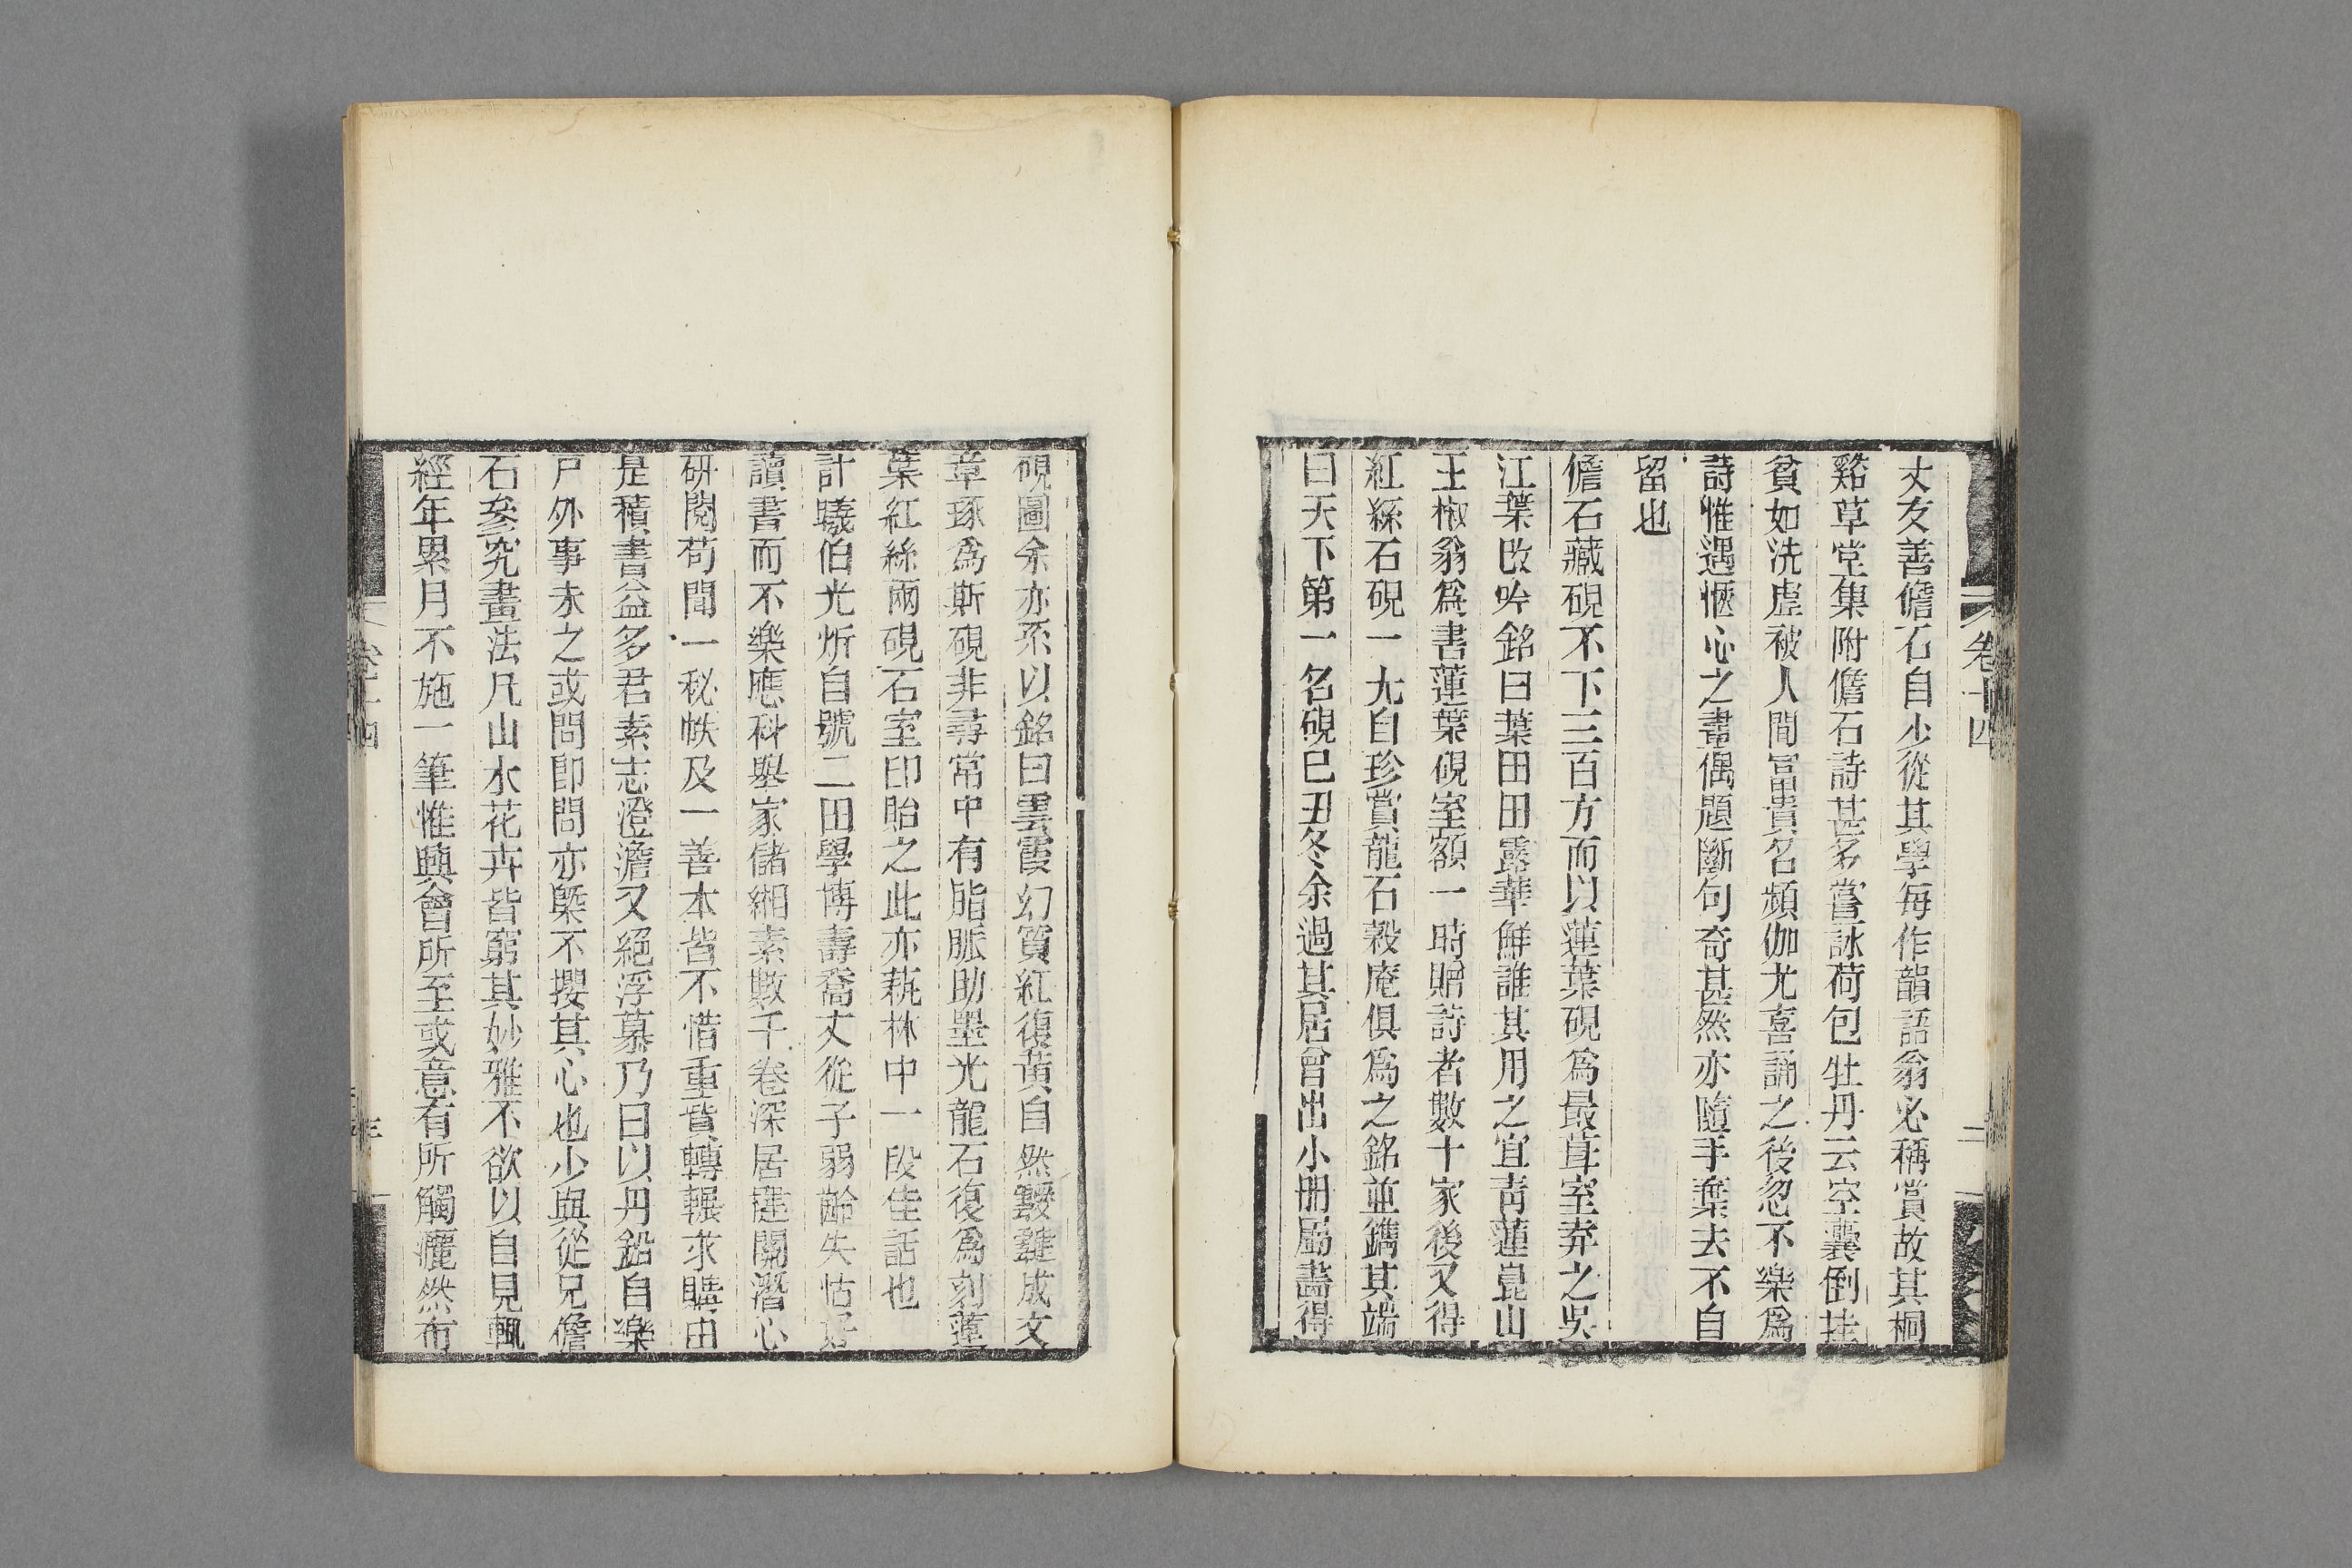 丈友善儋石自少從其學每作韻語翁必稱賞故其桐
谿草堂集附儋石詩甚多嘗詠荷包牡丹云空囊倒挂
貧如洗虛被人間富貴名頻伽尤喜誦之後忽不樂爲
詩惟遇愜心之畫偶題斷句奇甚然亦隨手棄去不自
留也
儋石藏硯不下三百方而以蓮葉硯爲最葺室弆之吳
江葉改吟銘曰葉田田露華鮮誰其用之宜青蓮崑山
王椒翁爲書蓮葉硯室額一時贈詩者數十家後又得
紅絲石硯一尤自珍賞龍石穀庵俱爲之銘並鐫其端
曰天下第一名硯己丑冬余過其居曾出小冊屬畫得
卷十四
二
硯圖余亦系以銘曰雲霞幻質紅復黃自然黼黻成文
章琢爲斯硯非尋常中有脂脈助墨光龍石復爲刻蓮
葉紅絲兩硯石室印貽之此亦蓺林中一段佳話也
計曦伯光炘自號二田學博壽喬丈從子弱齡失怙好
讀書而不樂應科舉家儲緗素數千卷深居鍵關潛心
研閱苟聞一秘帙及一善本皆不惜重貲轉輾求購由
是積書益多君素志澄澹又絕浮慕乃曰以丹鉛自樂
戶外事未之或問卽問亦槩不攖其心也少與從兄儋
石參究畫法凡山水花卉皆窮其妙雅不欲以自見輒
經年累月不施一筆惟興會所至或意有所觸灑然布
卷十四
三